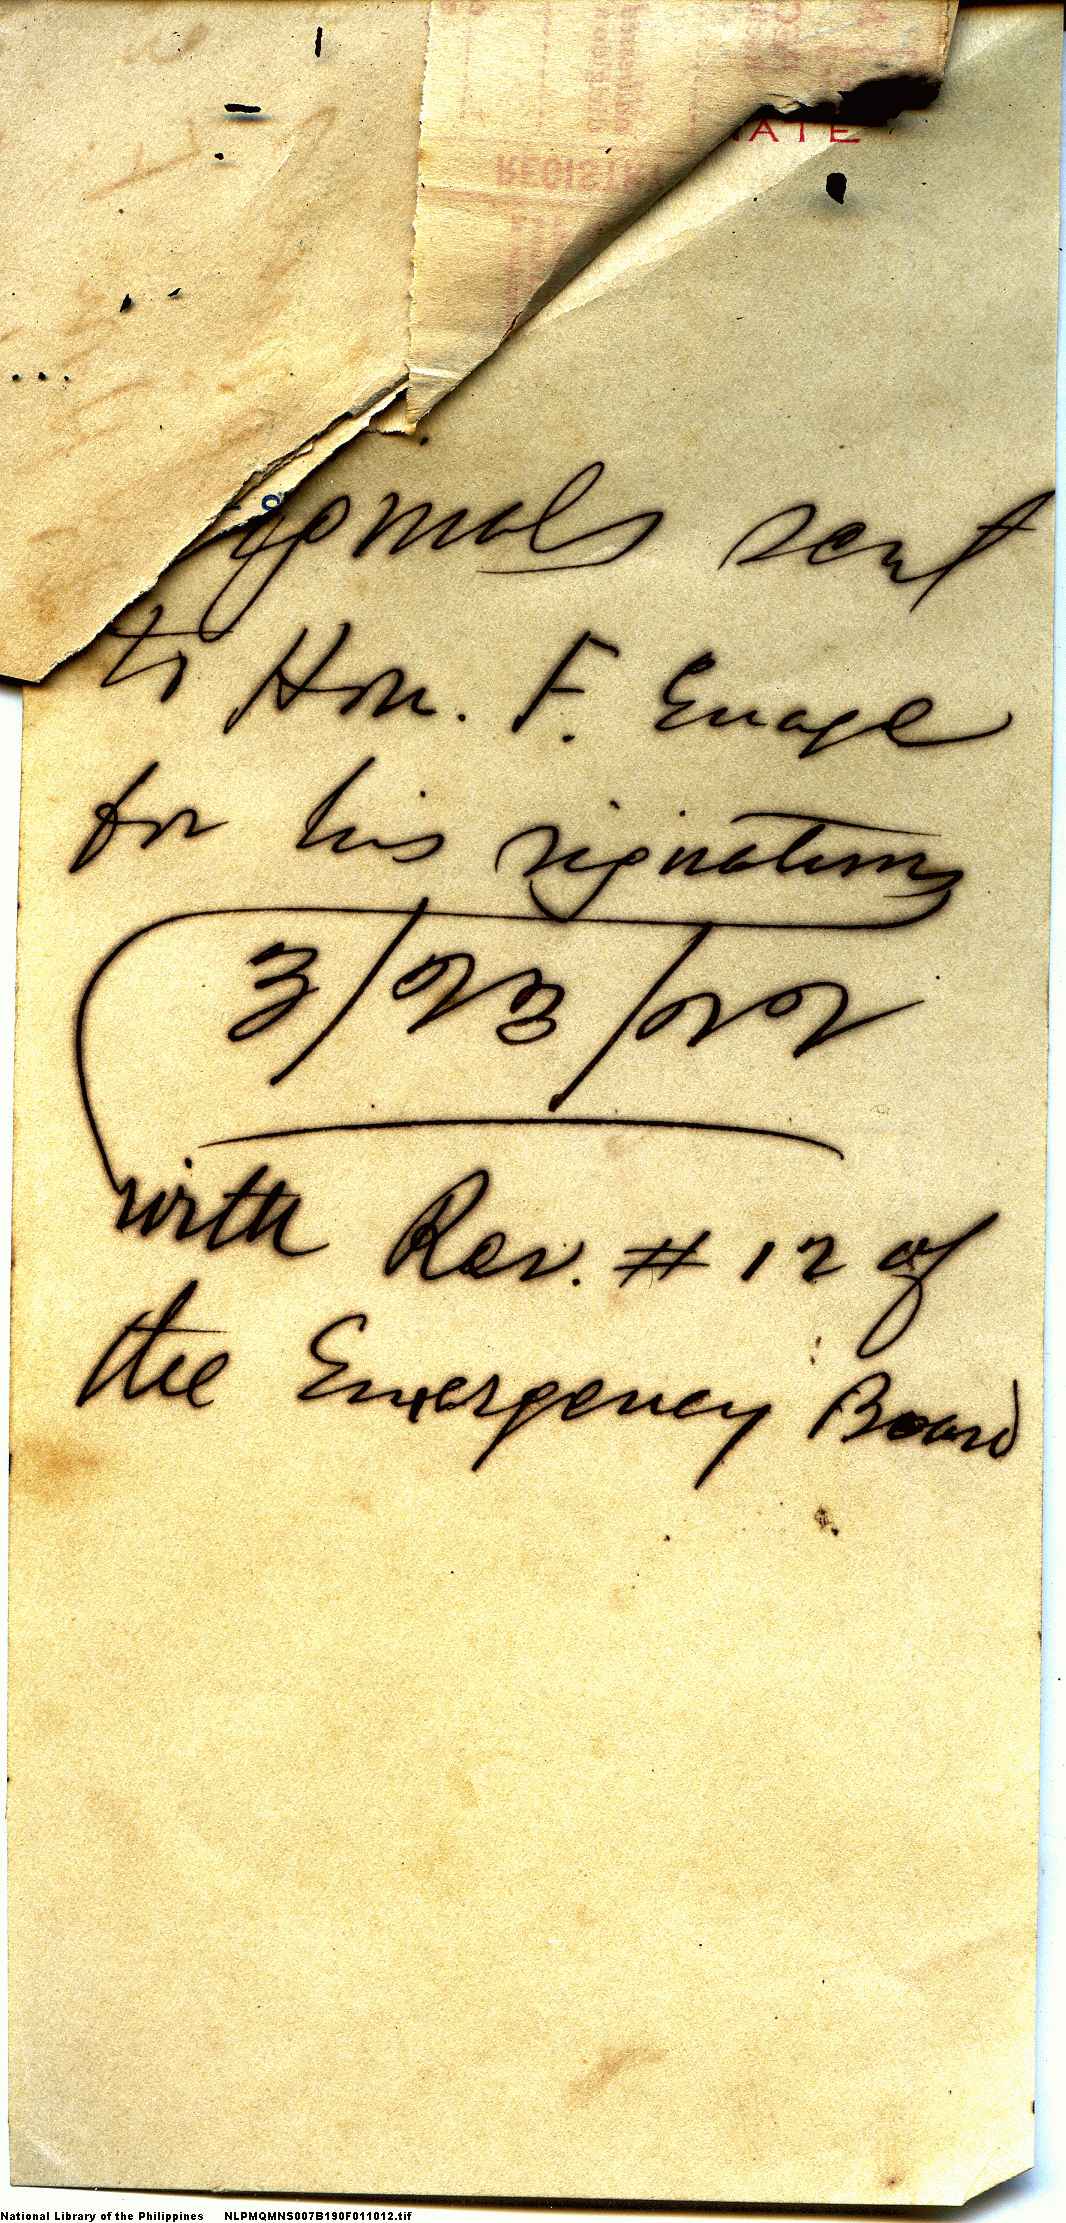 ATE
REGISTR
iginals sent
to Hon. F. Enage
for his signature
3/23/22
with Res. # 12 of
the Emergency Board
National Library of the Philippines NLPMQMNS007B190F011012.tif